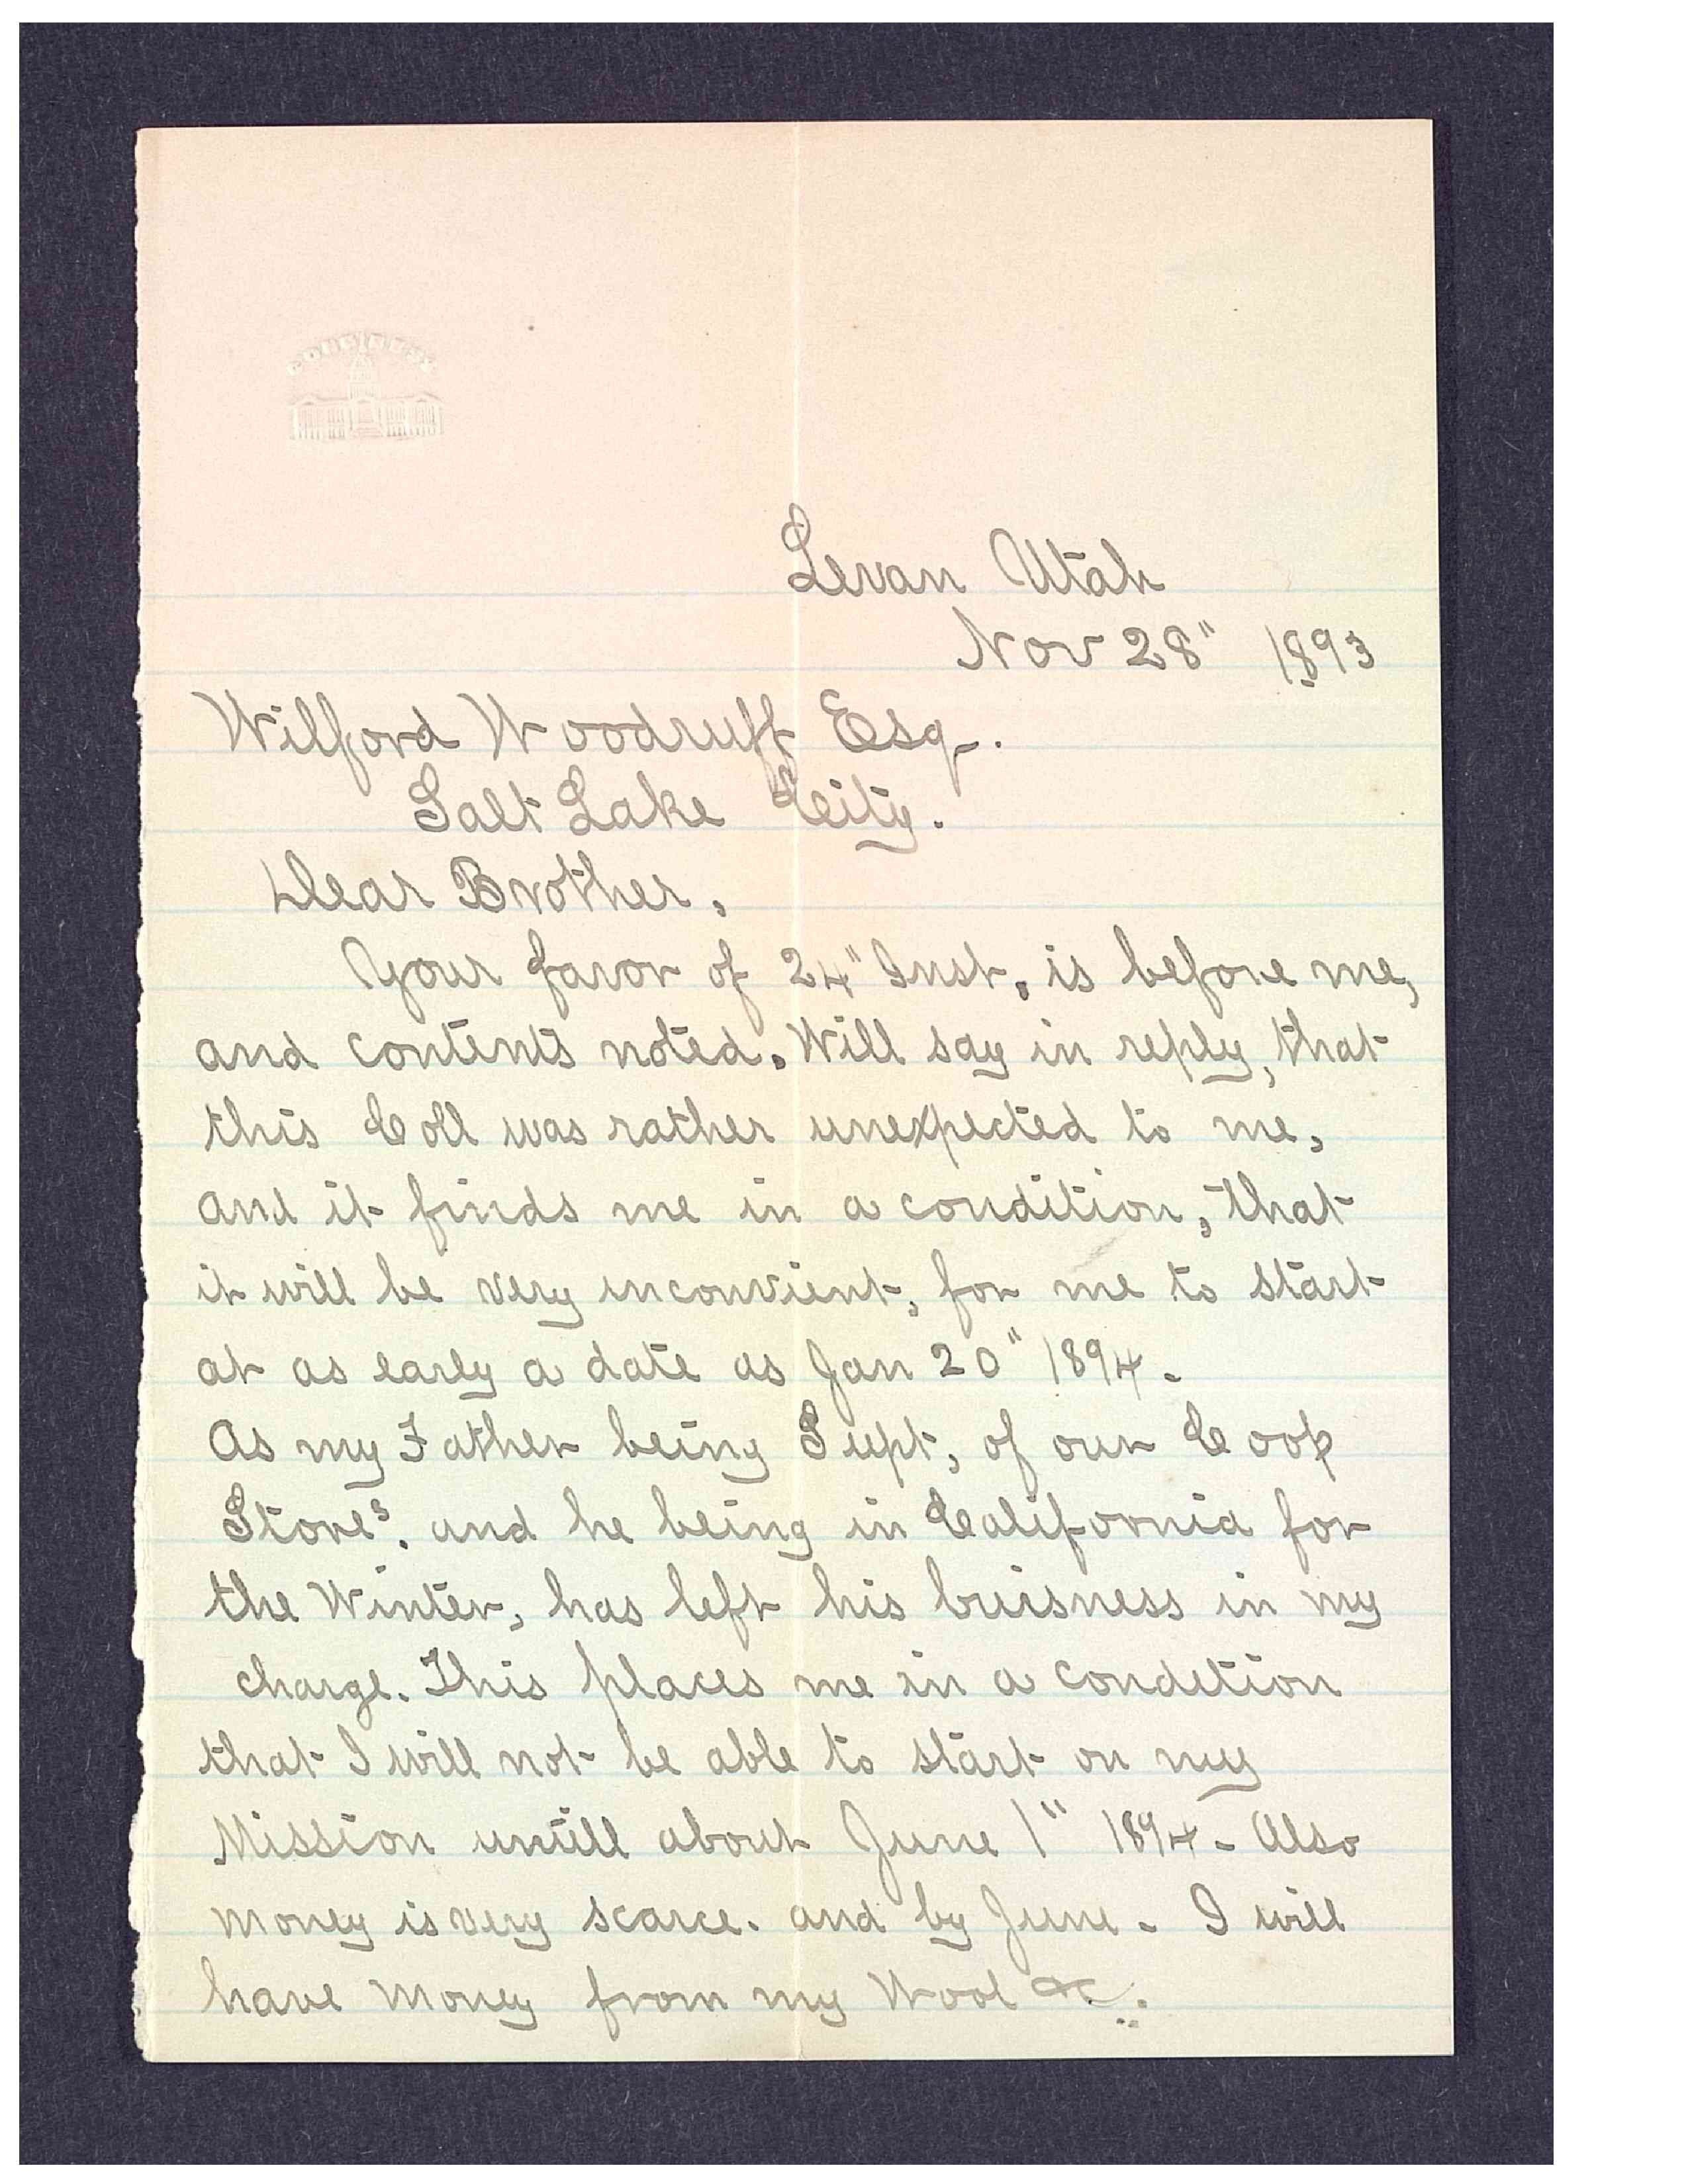 Levan Utah
Nov 28" 1893
Wilford Woodruff Esq.
Salt Lake City.
Dear Brother,
Your favor of 24" Inst, is before me,
and contents noted. Will say in reply, that
this Coll was rather unexpected to me,
and it finds me in a condition, that
it will be very inconvient, for me to start
at as early a date as Jan 20" 1894.
As my Father being Supt, of our Coop
Stores. and he being in California for
the Winter, has left his buisness in my
charge. This places me in a condetion
that I will not be able to start on my
Mission untill about June 1" 1894 - Also
money is very scarce. and by June - I will
have money from my Wool &c.